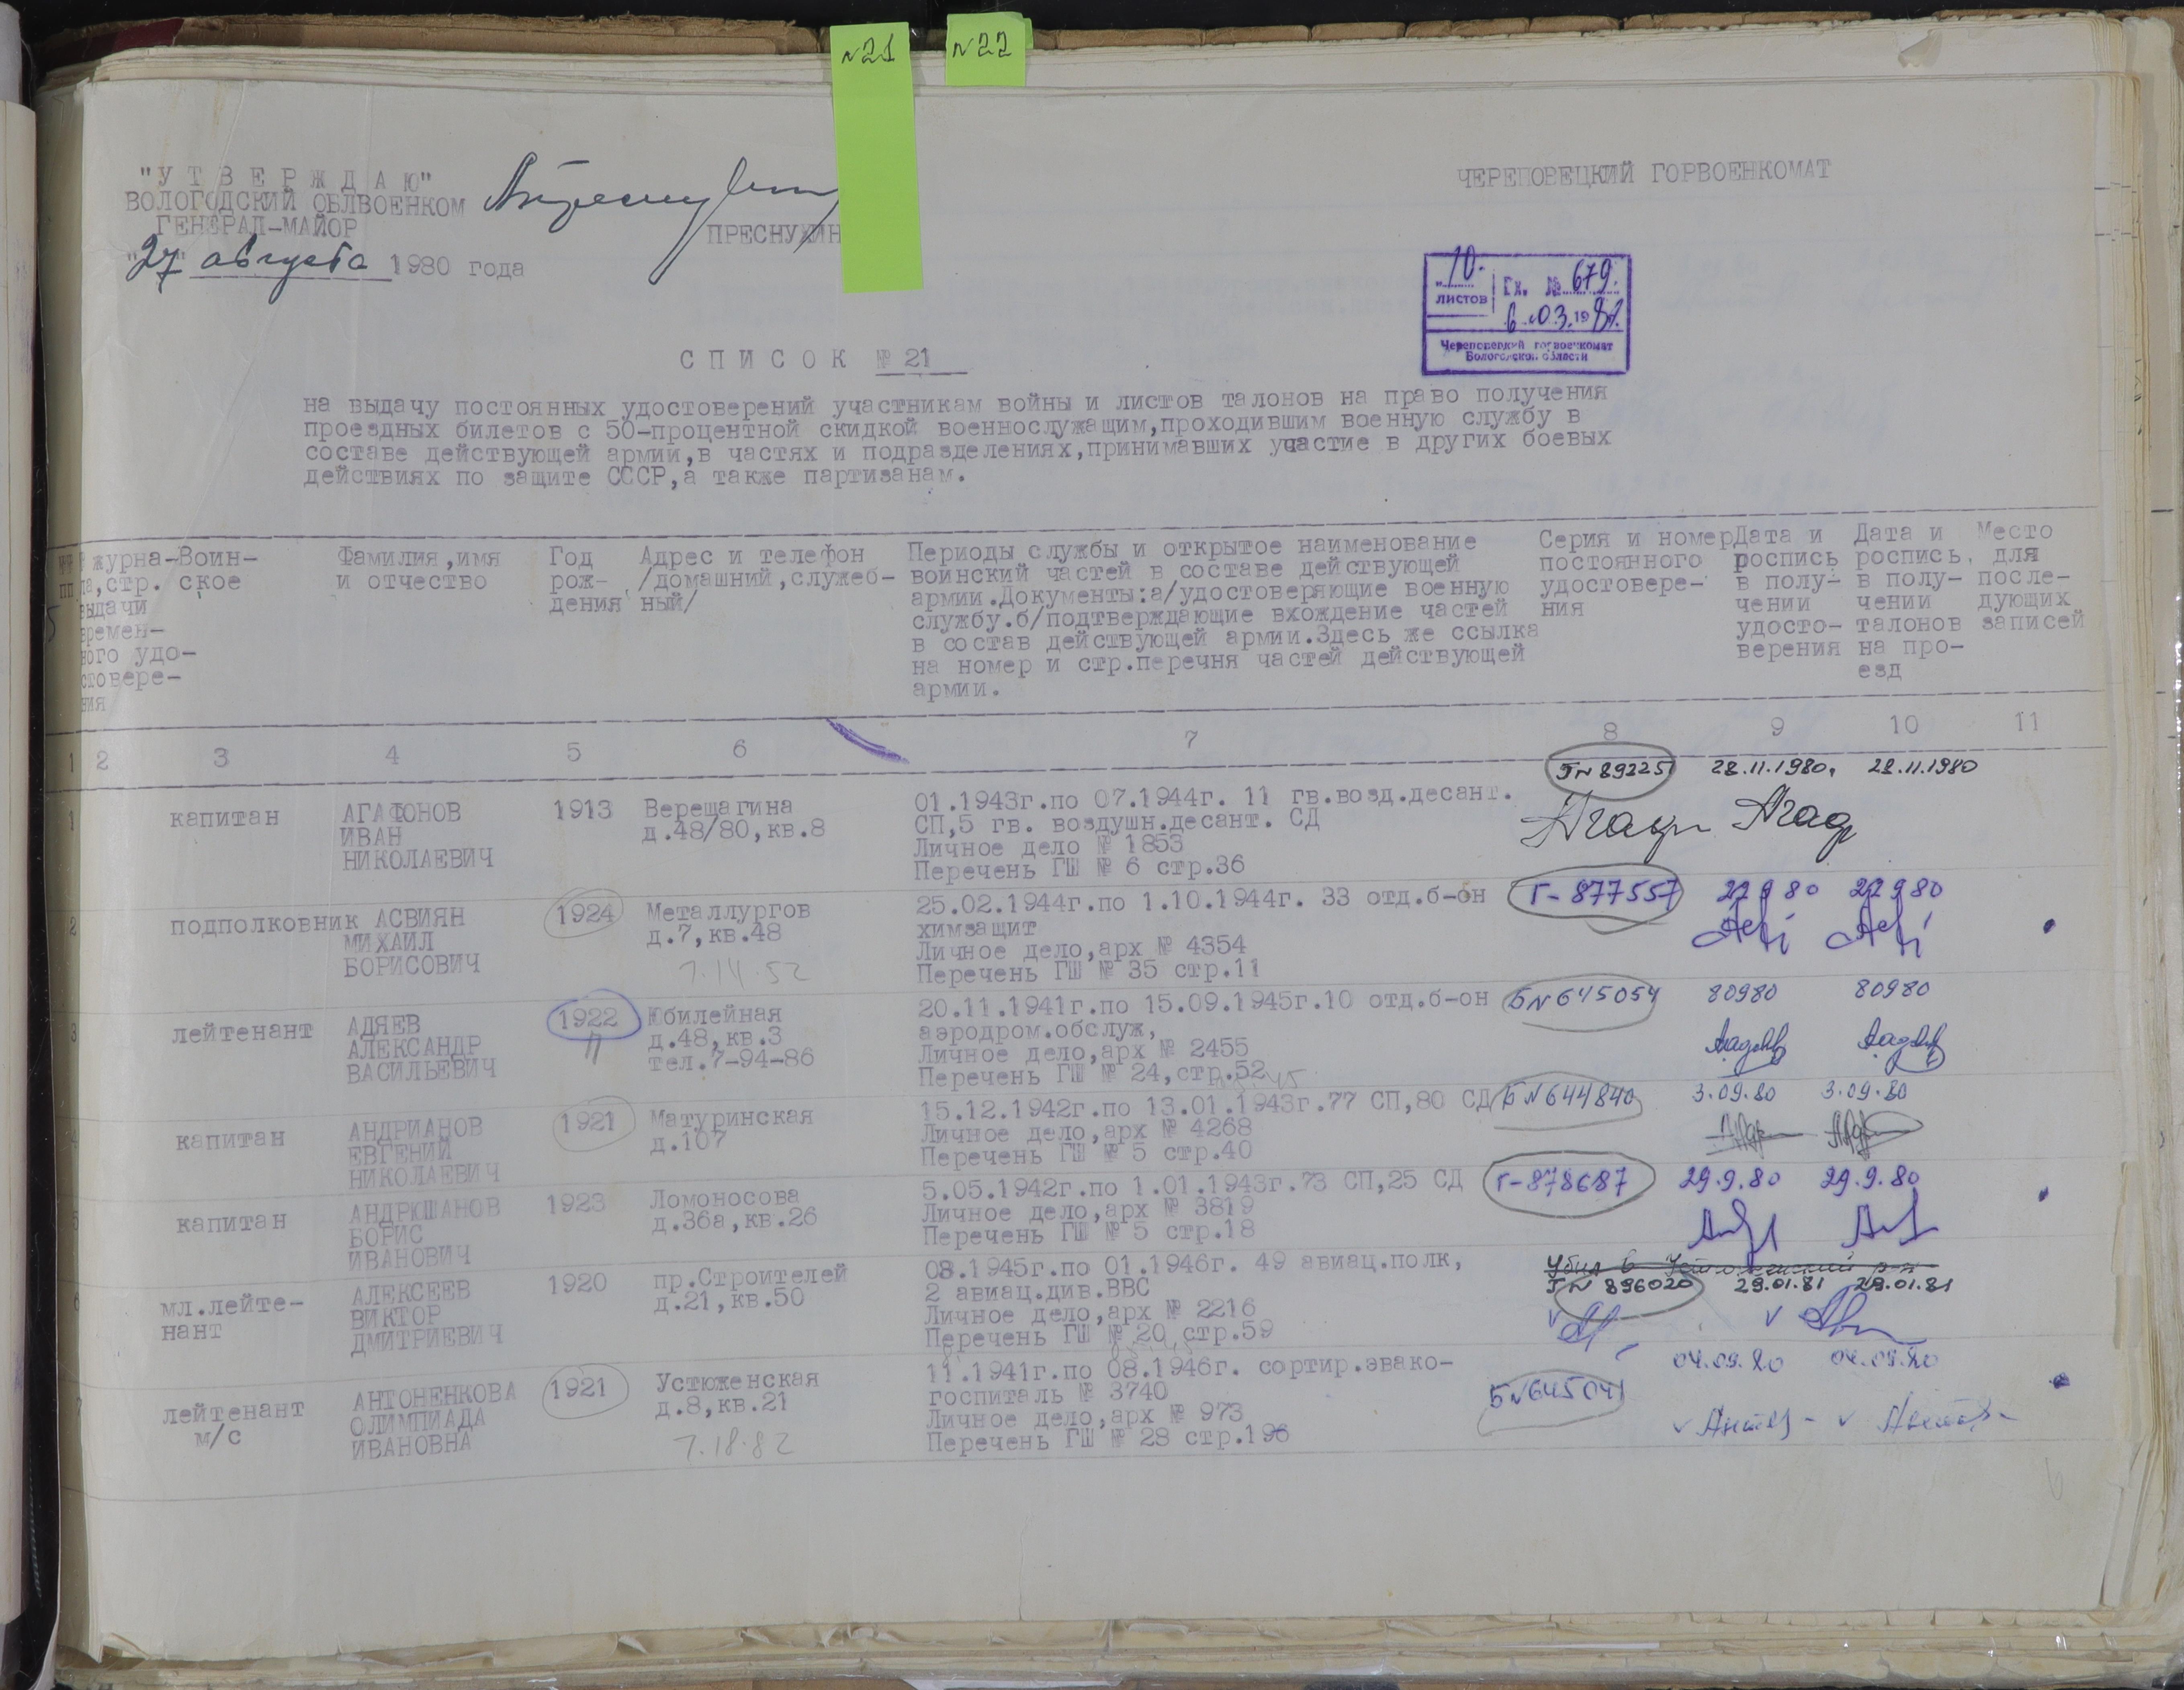 №21
№22
"У Т В Е Р Ж Д А Ю"
ВОЛОГОДСКИЙ ОБЛВОЕНКОМ
ГЕНЕРАЛ-МАЙОР
ПРЕСНУХИН
"27" августа 1980 года
ЧЕРЕПОВЕЦКИЙ ГОРВОЕНКОМАТ
10.
листов
Вх. № 679.
6.03.1981.
Череповецкий горвоенкомат
Вологодской области
С П И С О К № 21
на выдачу постоянных удостоверений участникам войны и листов талонов на право получения
проездных билетов с 50-процентной скидкой военнослужащим,проходившим военную службу в
составе действующей армии,в частях и подразделениях,принимавших участие в других боевых
действиях по защите СССР,а также партизанам.
№№ пп
№ журна-
ла,стр.
выдачи
времен-
ного удо-
стовере-
ния
Воин-
ское
Фамилия,имя
и отчество
Год
рож-
дения
Адрес и телефон
/домашний,служеб-
ный/
Периоды службы и открытое наименование
воинский частей в составе действующей
армии.Документы:а/удостоверяющие военную
службу.б/подтверждающие вхождение частей
в состав действующей армии.Здесь же ссылка
на номер и стр.перечня частей действующей
армии.
Серия и номер
постоянного
удостовере-
ния
Дата и
роспись
в полу-
чении
удосто-
верения
Дата и
роспись
в полу-
чении
талонов
на про-
езд
Место
для
после-
дующих
записей
1 2 3 4 5 6 7 8 9 10 11
1
капитан
АГАФОНОВ
ИВАН
НИКОЛАЕВИЧ
1913
Верещагина
д.48/80,кв.8
01.1943г.по 07.1944г. 11 гв.возд.десант.
СП,5 гв. воздушн.десант. СД
Личное дело № 1853
Перечень ГШ № 6 стр.36
Г№ 892251 28.11.1980. 28.11.1980
2
подполковник
АСВИЯН
МИХАИЛ
БОРИСОВИЧ
1924
Металлургов
д.7,кв.48
7.14.52
25.02.1944г.по 1.10.1944г. 33 отд.б-он
химзащит
Личное дело,арх № 4354
Перечень ГШ № 35 стр.11
Г- 877557 22 9 80 22 9 80
3
лейтенант
АДЯЕВ
АЛЕКСАНДР
ВАСИЛЬЕВИЧ
1922
Юбилейная
д.48,кв.3
тел.7-94-86
20.11.1941г.по 15.09.1945г.10 отд.б-он
аэродром.обслуж,
Личное дело,арх № 2455
Перечень ГШ № 24,стр.52
Б№645054 80980 80980
4
капитан
АНДРИАНОВ
ЕВГЕНИЙ
НИКОЛАЕВИЧ
1921
Матуринская
д.107
15.12.1942г.по 13.01.1943г.77 СП,80 СД
Личное дело,арх № 4268
Перечень ГШ № 5 стр.40
Б№644840 3.09.80 3.09.80
5
капитан
АНДРЮШАНОВ
БОРИС
ИВАНОВИЧ
1923
Ломоносова
д.36а,кв.26
5.05.1942г.по 1.01.1943г.73 СП,25 СД
Личное дело,арх № 3819
Перечень ГШ № 5 стр.18
Г-878687 29.9.80 29.9.80
6
мл.лейте-
нант
АЛЕКСЕЕВ
ВИКТОР
ДМИТРИЕВИЧ
1920
пр.Строителей
д.21,кв.50
08.1945г.по 01.1946г. 49 авиац.полк,
2 авиац.див.ВВС
Личное дело,арх № 2216
Перечень ГШ № 20 стр.59
Г№ 896020 29.01.81 29.01.81
7
лейтенант
м/с
АНТОНЕНКОВА
ОЛИМПИАДА
ИВАНОВНА
1921
Устюженская
д.8,кв.21
7.18.82
11.1941г.по 08.1946г. сортир.эвако-
госпиталь № 3740
Личное дело,арх № 973
Перечень ГШ № 28 стр.196
Б№645041 04.09.80 04.09.80